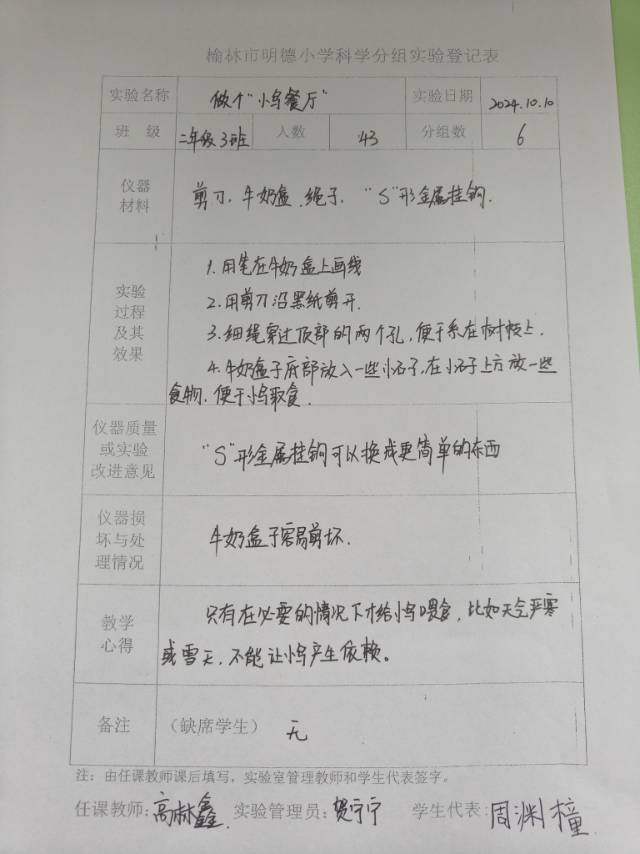 榆林市明德小学科学分组实验登记表
实验名称 做个“小鸟餐厅” 实验日期 2024.10.10
班 级 二年级3班 人数 43 分组数 6
仪器
材料
剪刀、牛奶盒、绳子、“S”形金属挂钩.
实验
过程
及其
效果
1.用笔在牛奶盒上画线
2.用剪刀沿黑纸剪开.
3.细绳穿过顶部的两个孔,便于系在树枝上.
4.牛奶盒子底部放入一些小石子,在小石子上方放一些
食物.便于小鸟取食.
仪器质量
或实验
改进意见
“S”形金属挂钩可以换成更简单的东西
仪器损
坏与处
理情况
牛奶盒子容易剪坏.
教学
心得
只有在必要的情况下才给小鸟喂食,比如天气严寒
或雪天,不能让小鸟产生依赖。
备注 （缺席学生） 无
注：由任课教师课后填写，实验室管理教师和学生代表签字。
任课教师:高林鑫 实验管理员:贺宁宁 学生代表:周渊橦